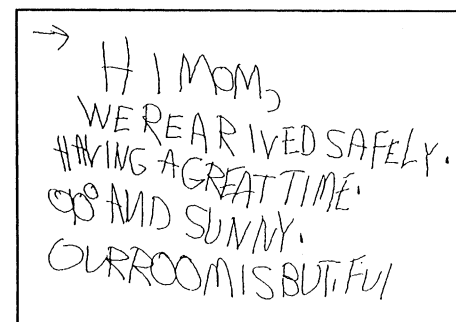 → HI MOM,
WE REARIVED SAFELY.
HAVING A GREAT TIME.
90° AND SUNNY.
OUR ROOM IS BUTIFUl